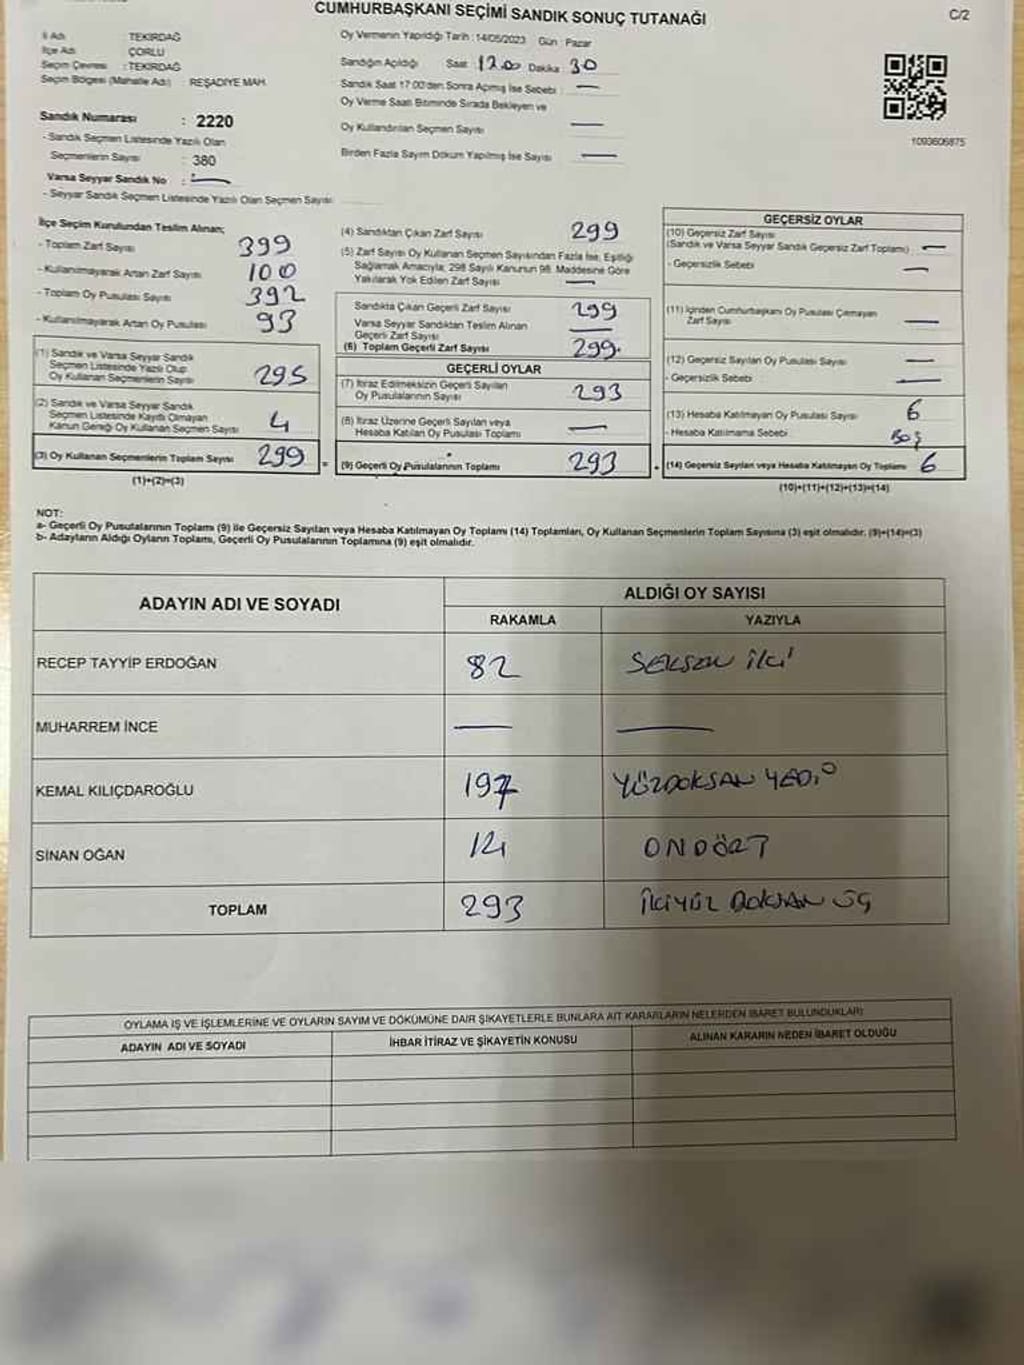 CUMHURBAŞKANI SEÇİMİ SANDIK SONUÇ TUTANAĞI
C/2
İl Adı : TEKİRDAĞ
İlçe Adı : ÇORLU
Seçim Çevresi : TEKİRDAĞ
Seçim Bölgesi (Mahalle Adı) : REŞADİYE MAH.
Sandık Numarası : 2220
- Sandık Seçmen Listesinde Yazılı Olan
Seçmenlerin Sayısı : 380
Varsa Seyyar Sandık No : —
- Seyyar Sandık Seçmen Listesinde Yazılı Olan Seçmen Sayısı:
Oy Vermenin Yapıldığı Tarih : 14/05/2023 Gün : Pazar
Sandığın Açıldığı Saat : Dakika : 30
Sandık Saat 17:00'den Sonra Açmış İse Sebebi : —
Oy Verme Saati Bitiminde Sırada Bekleyen ve
Oy Kullandırılan Seçmen Sayısı —
Birden Fazla Sayım Döküm Yapılmış İse Sayısı —
1093606875
İlçe Seçim Kurulundan Teslim Alınan;
- Toplam Zarf Sayısı 399
- Kullanılmayarak Artan Zarf Sayısı 100
- Toplam Oy Pusulası Sayısı 392
- Kullanılmayarak Artan Oy Pusulası 93
(1) Sandık ve Varsa Seyyar Sandık
Seçmen Listesinde Yazılı Olup
Oy Kullanan Seçmenlerin Sayısı 295
(2) Sandık ve Varsa Seyyar Sandık
Seçmen Listesinde Kayıtlı Olmayan
Kanun Gereği Oy Kullanan Seçmen Sayısı 4
(3) Oy Kullanan Seçmenlerin Toplam Sayısı 299 =
(1)+(2)=(3)
(4) Sandıktan Çıkan Zarf Sayısı 299
(5) Zarf Sayısı Oy Kullanan Seçmen Sayısından Fazla İse, Eşitliği
Sağlamak Amacıyla; 298 Sayılı Kanunun 98. Maddesine Göre
Yakılarak Yok Edilen Zarf Sayısı —
Sandıkta Çıkan Geçerli Zarf Sayısı 299
Varsa Seyyar Sandıktan Teslim Alınan
Geçerli Zarf Sayısı —
(6) Toplam Geçerli Zarf Sayısı 299
GEÇERLİ OYLAR
(7) İtiraz Edilmeksizin Geçerli Sayılan
Oy Pusulalarının Sayısı 293
(8) İtiraz Üzerine Geçerli Sayılan veya
Hesaba Katılan Oy Pusulası Toplamı —
(9) Geçerli Oy Pusulalarının Toplamı 293 +
GEÇERSİZ OYLAR
(10) Geçersiz Zarf Sayısı
(Sandık ve Varsa Seyyar Sandık Geçersiz Zarf Toplamı) —
- Geçersizlik Sebebi —
(11) İçinden Cumhurbaşkanı Oy Pusulası Çıkmayan
Zarf Sayısı —
(12) Geçersiz Sayılan Oy Pusulası Sayısı —
- Geçersizlik Sebebi —
(13) Hesaba Katılmayan Oy Pusulası Sayısı 6
- Hesaba Katılmama Sebebi Boş
(14) Geçersiz Sayılan veya Hesaba Katılmayan Oy Toplamı 6
(10)+(11)+(12)+(13)=(14)
NOT:
a- Geçerli Oy Pusulalarının Toplamı (9) ile Geçersiz Sayılan veya Hesaba Katılmayan Oy Toplamı (14) Toplamları, Oy Kullanan Seçmenlerin Toplam Sayısına (3) eşit olmalıdır. (9)+(14)=(3)
b- Adayların Aldığı Oyların Toplamı, Geçerli Oy Pusulalarının Toplamına (9) eşit olmalıdır.
ADAYIN ADI VE SOYADI
ALDIĞI OY SAYISI
RAKAMLA YAZIYLA
RECEP TAYYİP ERDOĞAN 82 SEKSEN İKİ
MUHARREM İNCE — —
KEMAL KILIÇDAROĞLU 197 YÜZDOKSAN YEDİ
SİNAN OĞAN 14 ONDÖRT
TOPLAM 293 İKİYÜZ DOKSAN ÜÇ
OYLAMA İŞ VE İŞLEMLERİNE VE OYLARIN SAYIM VE DÖKÜMÜNE DAİR ŞİKAYETLERLE BUNLARA AİT KARARLARIN NELERDEN İBARET BULUNDUKLARI
ADAYIN ADI VE SOYADI İHBAR İTİRAZ VE ŞİKAYETİN KONUSU ALINAN KARARIN NEDEN İBARET OLDUĞU